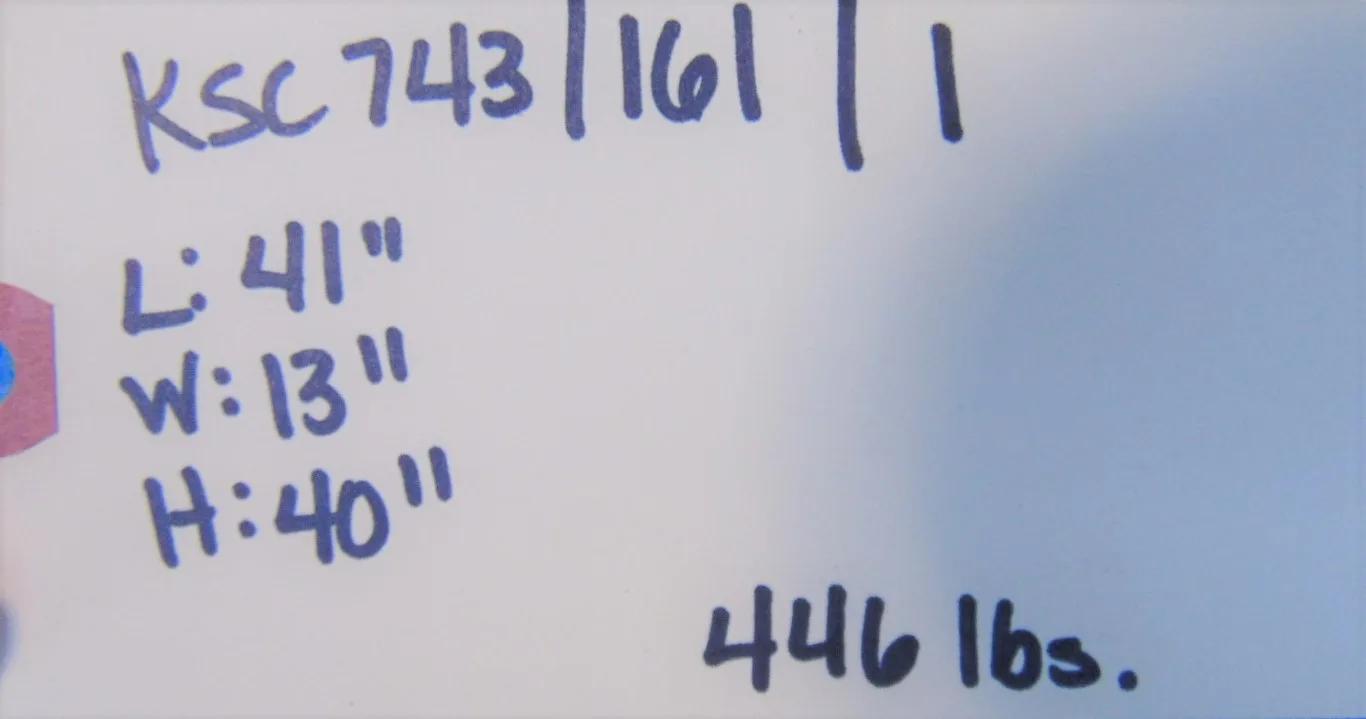 KSC 743/161/1
L: 41"
W: 13"
H: 40"
446 lbs.